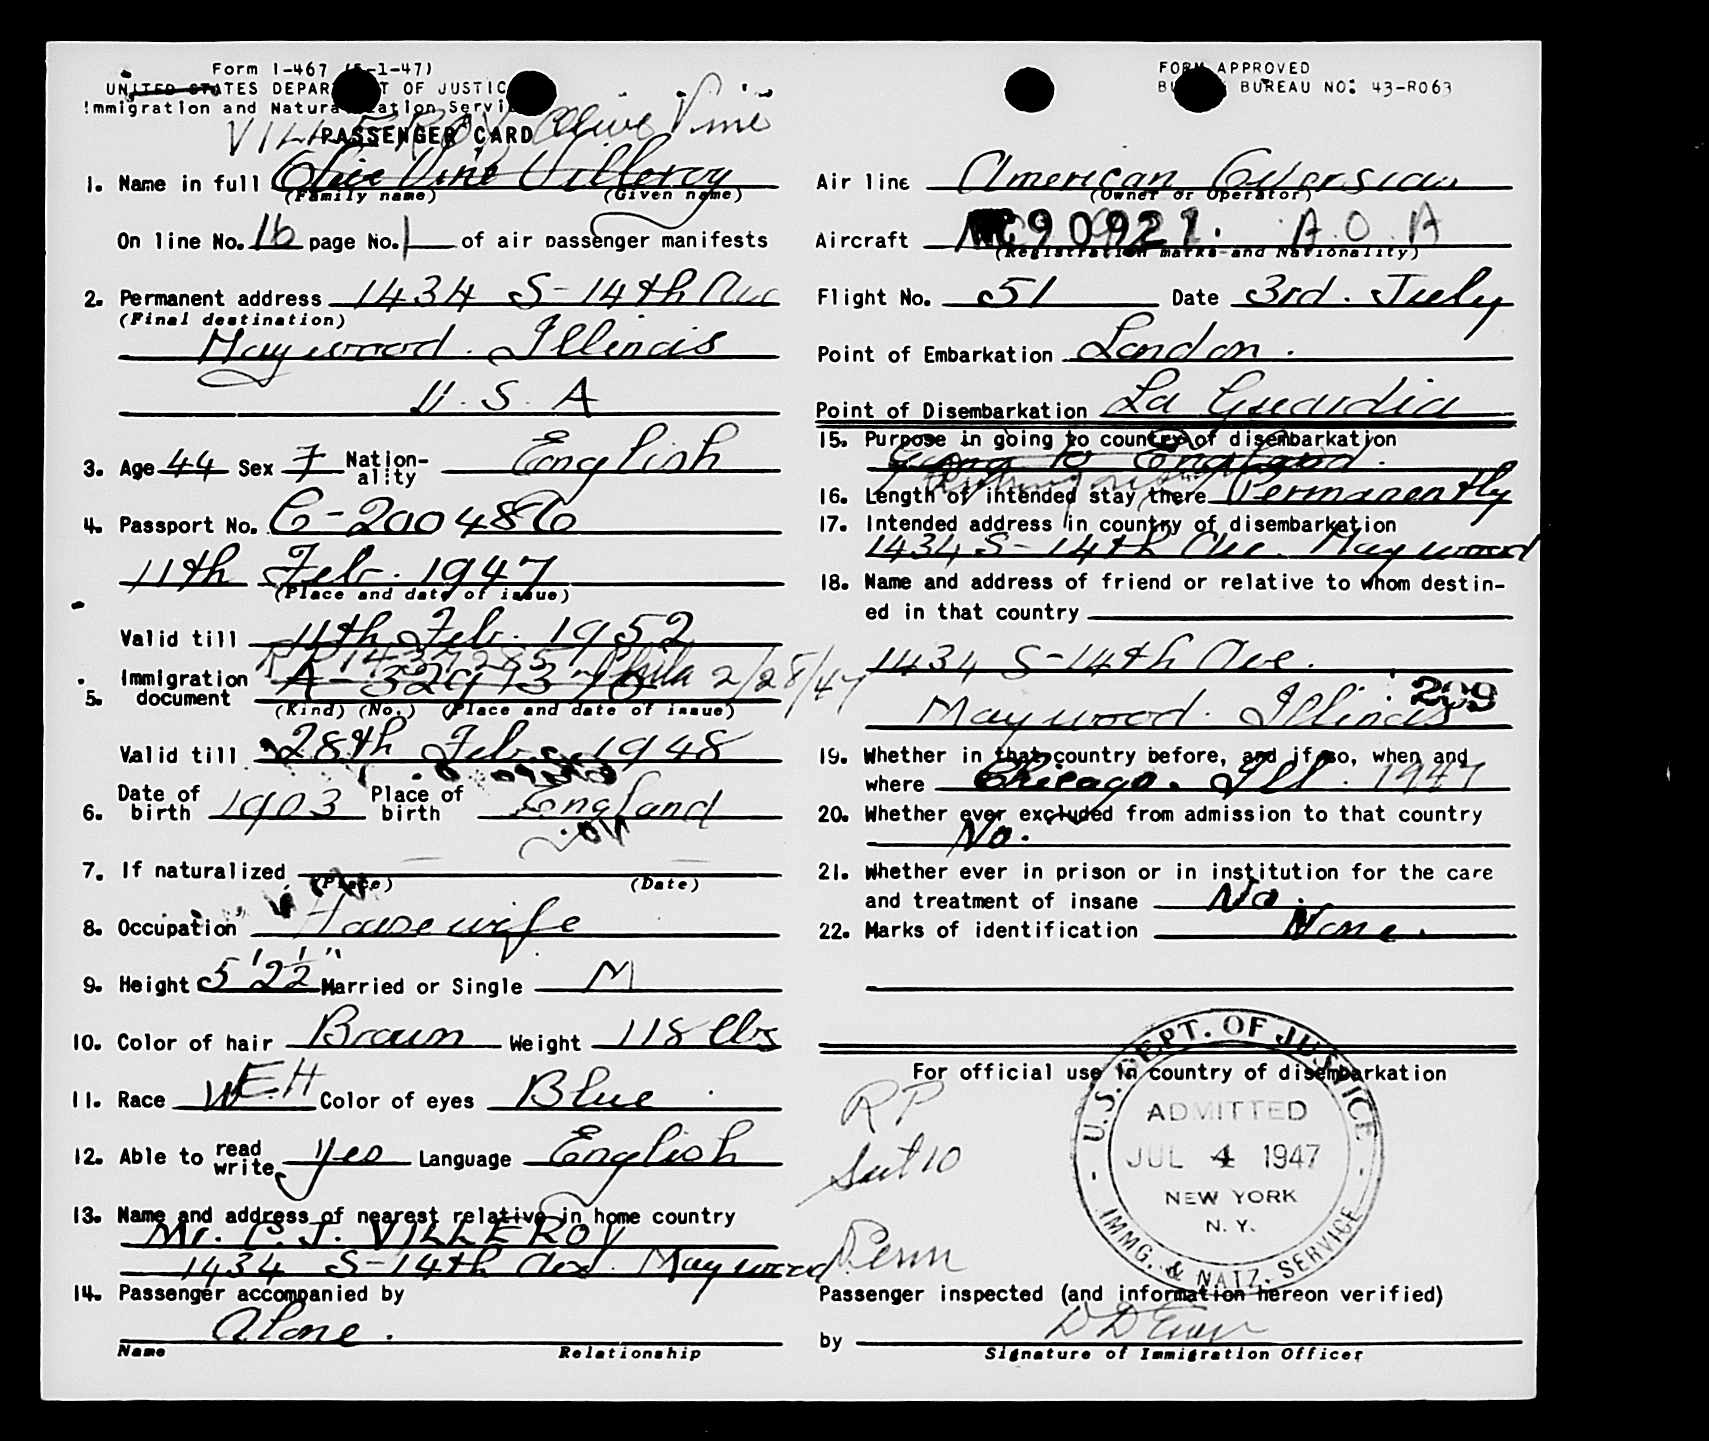 Form I-467 (5-1-47)
UNITED STATES DEPARTMENT OF JUSTICE
Immigration and Naturalization Service
VILLEROY Olive Vine
PASSENGER CARD
1. Name in full Olive Vine Villeroy
(Family name) (Given name)
On line No. 16 page No. 1 of air passenger manifests
2. Permanent address 1434 S-14th Ave
(Final destination)
Maywood. Illinois
U.S.A
3. Age 44 Sex F Nation-ality English
4. Passport No. C-200486
11th Feb. 1947
(Place and date of issue)
Valid till 11th Feb. 1952
5. Immigration document RP 1437285 Phila 2/28/47
(Kind) (No.) (Place and date of issue)
Valid till 28th Feb. 1948
6. Date of birth 1903 Place of birth England
7. If naturalized
(Place) (Date)
8. Occupation Housewife
9. Height 5'2½" Married or Single M
10. Color of hair Brown Weight 118 lbs
11. Race W EH Color of eyes Blue
12. Able to read write Yes Language English
13. Name and address of nearest relative in home country
Mr. P. J. VILLEROY
1434 S-14th Ave. Maywood
14. Passenger accompanied by
Alone.
Name Relationship
FORM APPROVED
BUREAU NO: 43-R063
Air line American Overseas
(Owner or Operator)
Aircraft NC90921. A.O.A
(Registration marks and Nationality)
Flight No. 51 Date 3rd. July
Point of Embarkation London.
Point of Disembarkation La Guardia
15. Purpose in going to country of disembarkation
Going to England.
16. Length of intended stay there Permanently
17. Intended address in country of disembarkation
1434 S-14th Ave. Maywood
18. Name and address of friend or relative to whom destin-
ed in that country
1434 S-14th Ave.
209
Maywood. Illinois
19. Whether in that country before, and if so, when and
where Chicago. Ill. 1947
20. Whether ever excluded from admission to that country
No.
21. Whether ever in prison or in institution for the care
and treatment of insane No.
22. Marks of identification None.
For official use in country of disembarkation
RP
Sect 10
Perm
U.S. DEPT. OF JUSTICE
ADMITTED
JUL 4 1947
NEW YORK
N.Y.
IMMG. & NATZ. SERVICE
Passenger inspected (and information hereon verified)
by
Signature of Immigration Officer